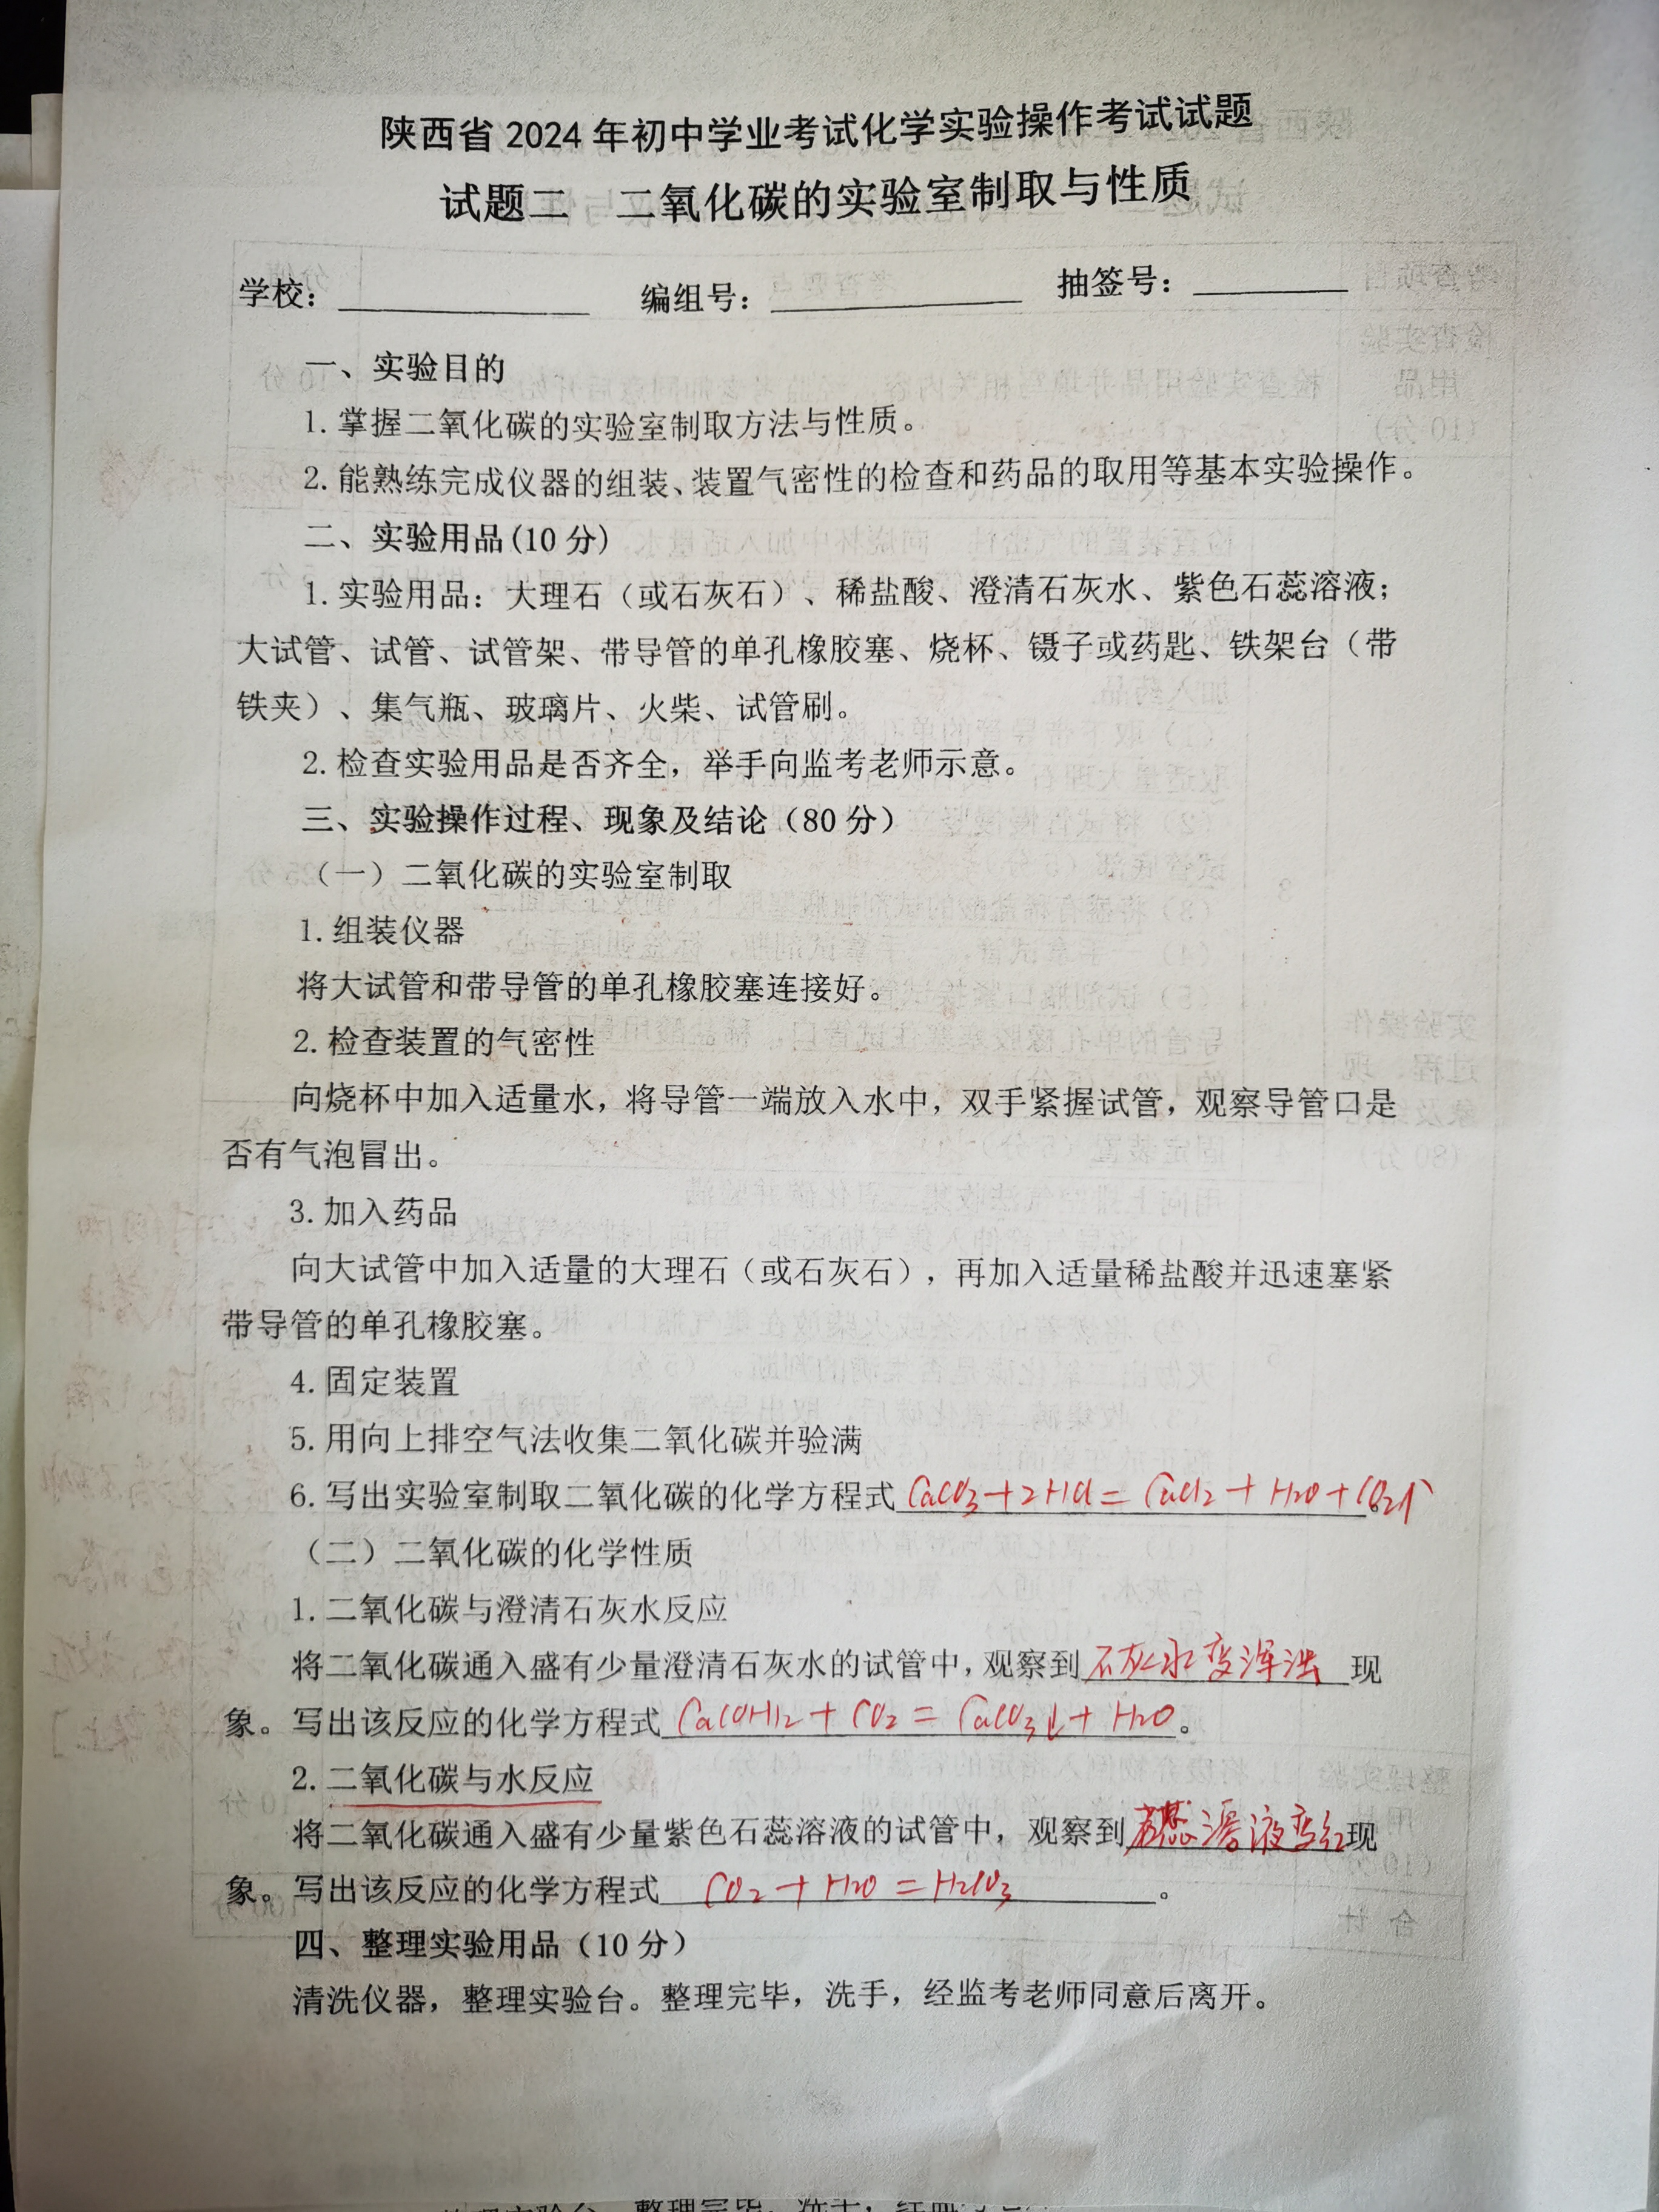 陕西省 2024 年初中学业考试化学实验操作考试试题
试题二 二氧化碳的实验室制取与性质
学校: 编组号: 抽签号:
一、实验目的
1.掌握二氧化碳的实验室制取方法与性质。
2.能熟练完成仪器的组装、装置气密性的检查和药品的取用等基本实验操作。
二、实验用品(10 分)
1.实验用品:大理石(或石灰石)、稀盐酸、澄清石灰水、紫色石蕊溶液;
大试管、试管、试管架、带导管的单孔橡胶塞、烧杯、镊子或药匙、铁架台(带
铁夹)、集气瓶、玻璃片、火柴、试管刷。
2.检查实验用品是否齐全,举手向监考老师示意。
三、实验操作过程、现象及结论(80 分)
(一)二氧化碳的实验室制取
1.组装仪器
将大试管和带导管的单孔橡胶塞连接好。
2.检查装置的气密性
向烧杯中加入适量水,将导管一端放入水中,双手紧握试管,观察导管口是
否有气泡冒出。
3.加入药品
向大试管中加入适量的大理石(或石灰石),再加入适量稀盐酸并迅速塞紧
带导管的单孔橡胶塞。
4.固定装置
5.用向上排空气法收集二氧化碳并验满
6.写出实验室制取二氧化碳的化学方程式 CaCO3+2HCl=CaCl2+H2O+CO2↑。
(二)二氧化碳的化学性质
1.二氧化碳与澄清石灰水反应
将二氧化碳通入盛有少量澄清石灰水的试管中,观察到 石灰水变浑浊 现
象。写出该反应的化学方程式 Ca(OH)2+CO2=CaCO3↓+H2O。
2.二氧化碳与水反应
将二氧化碳通入盛有少量紫色石蕊溶液的试管中,观察到 石蕊溶液变红 现
象。写出该反应的化学方程式 CO2+H2O=H2CO3。
四、整理实验用品(10 分)
清洗仪器,整理实验台。整理完毕,洗手,经监考老师同意后离开。